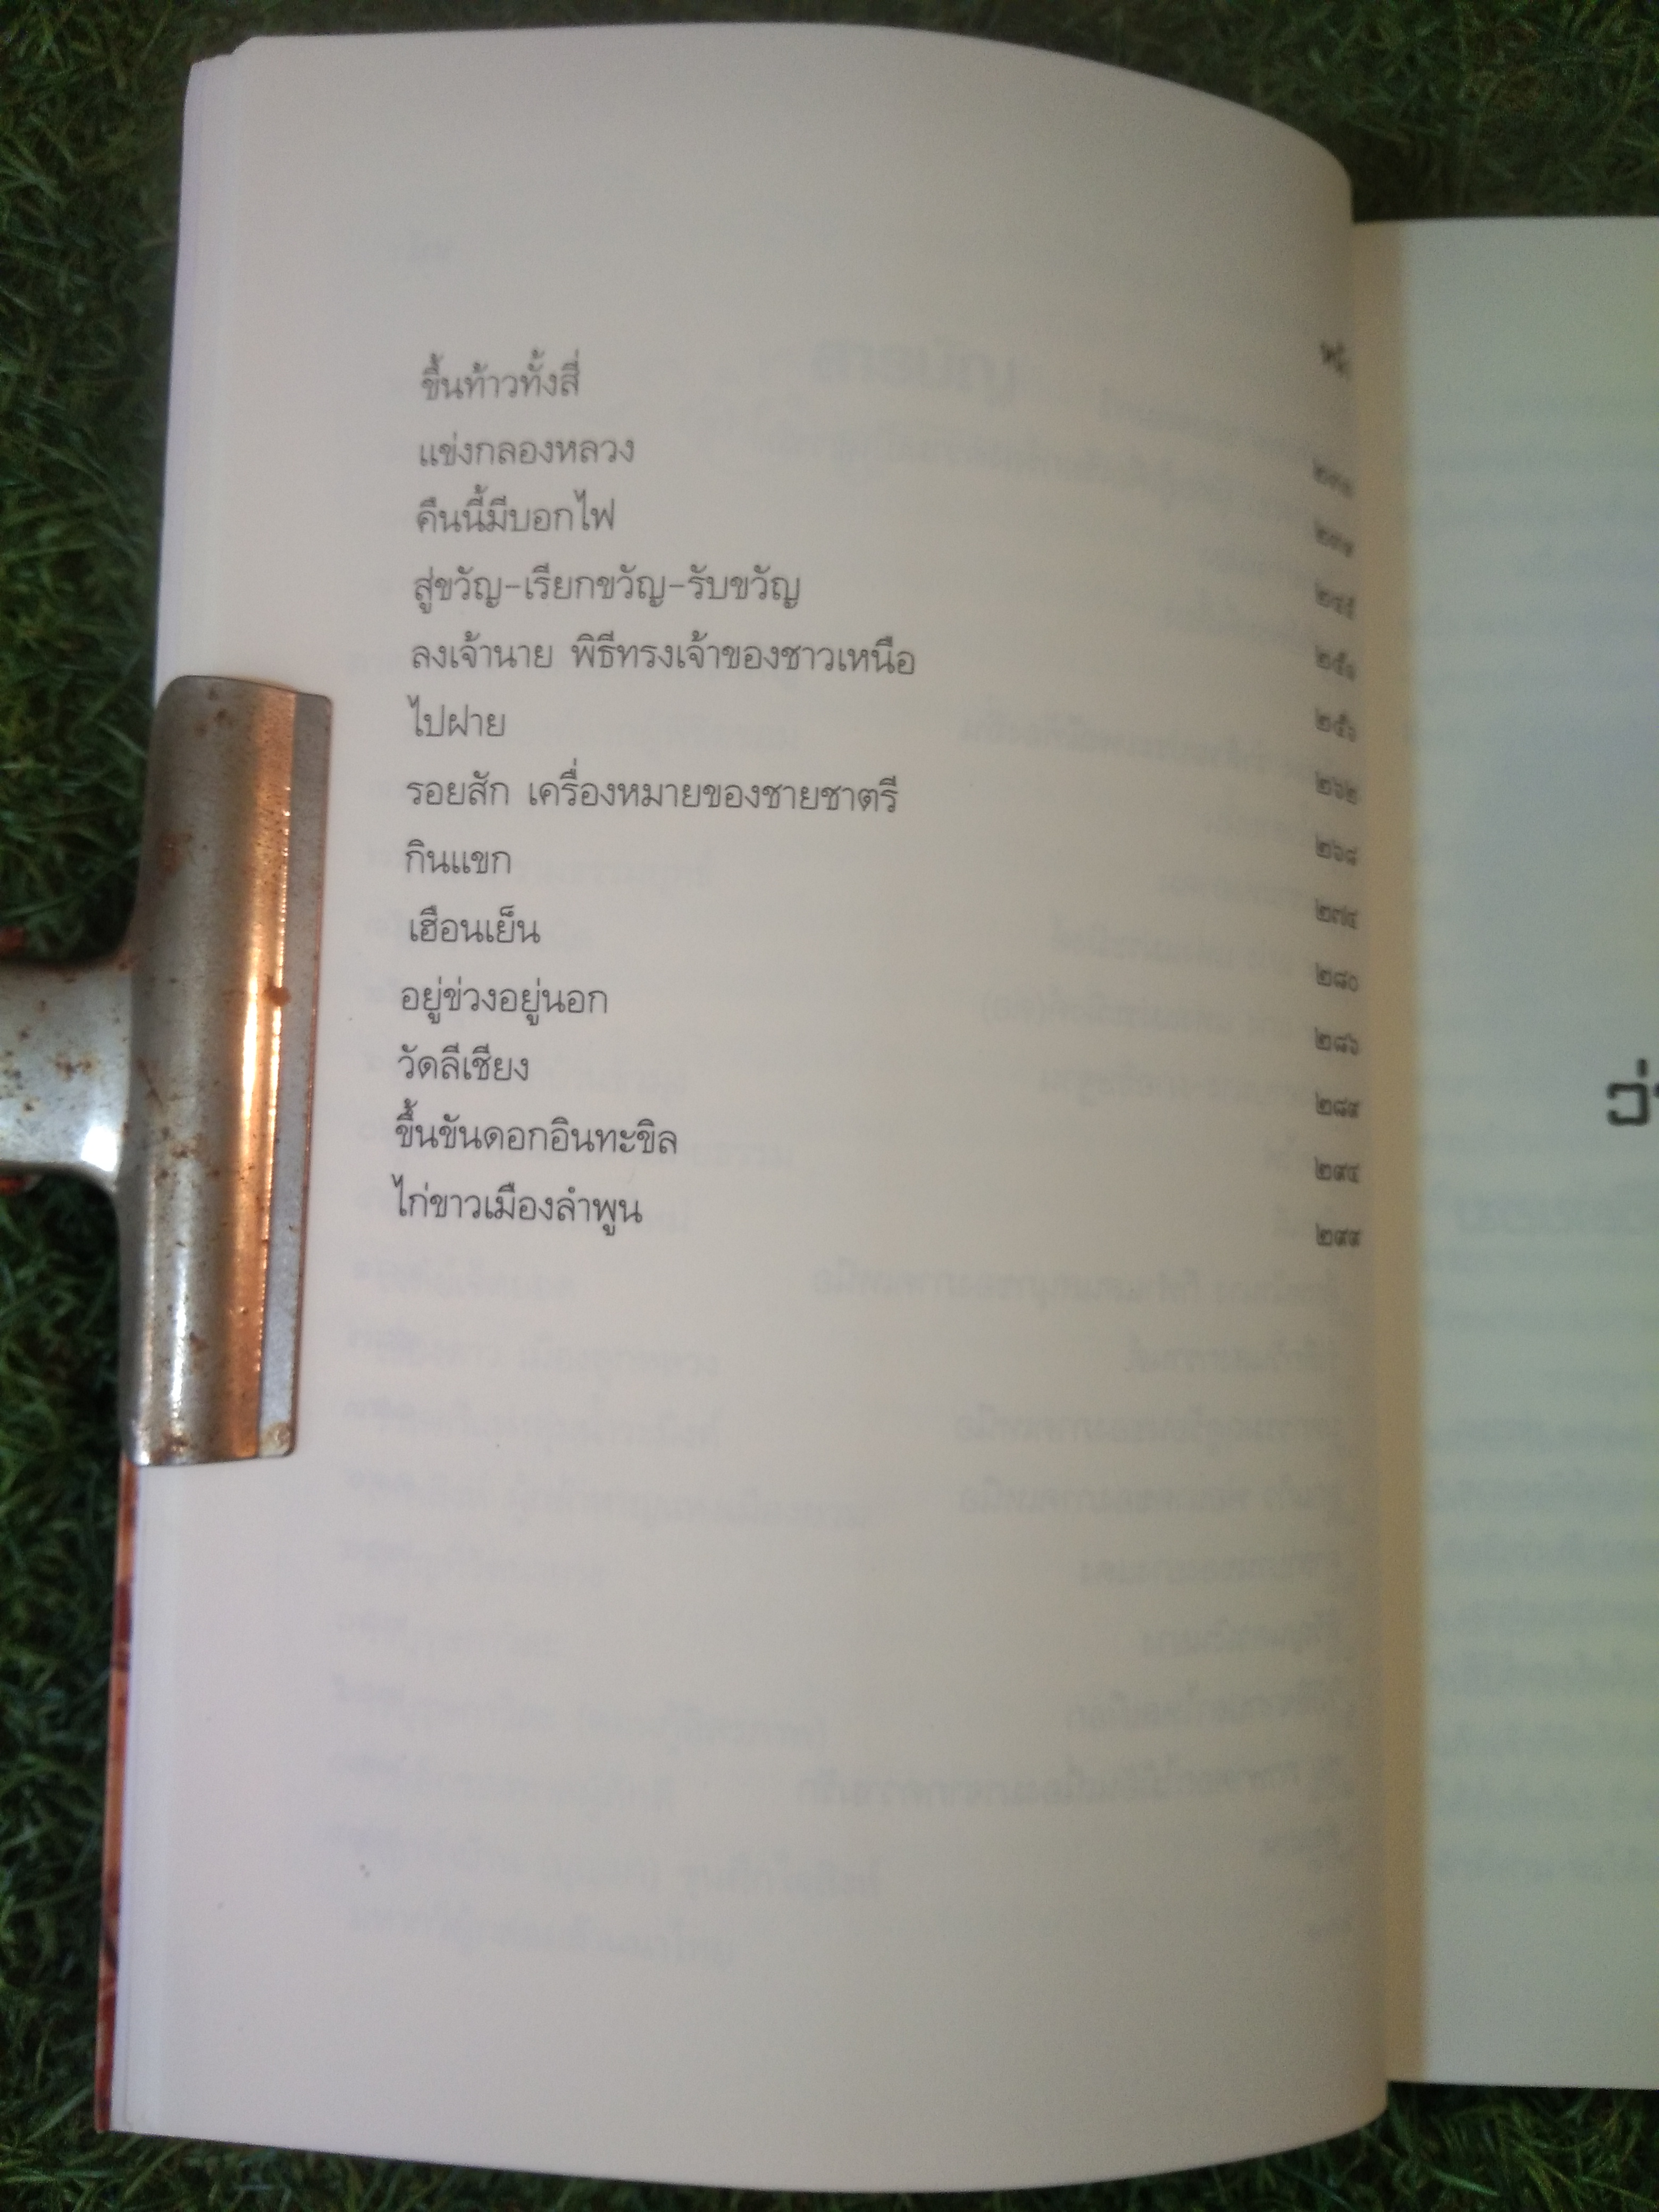 ขึ้นท้าวทั้งสี่
แข่งกลองหลวง
คืนนี้มีบอกไฟ ๒๔๕
สู่ขวัญ-เรียกขวัญ-รับขวัญ ๒๕๑
ลงเจ้านาย พิธีทรงเจ้าของชาวเหนือ ๒๕๖
ไปฝาย ๒๖๒
รอยสัก เครื่องหมายของชายชาตรี ๒๖๘
กินแขก ๒๗๔
เฮือนเย็น ๒๘๐
อยู่ข่วงอยู่นอก ๒๘๖
วัดลีเชียง ๒๘๙
ขึ้นขันดอกอินทะขิล ๒๙๔
ไก่ขาวเมืองลำพูน ๒๙๙